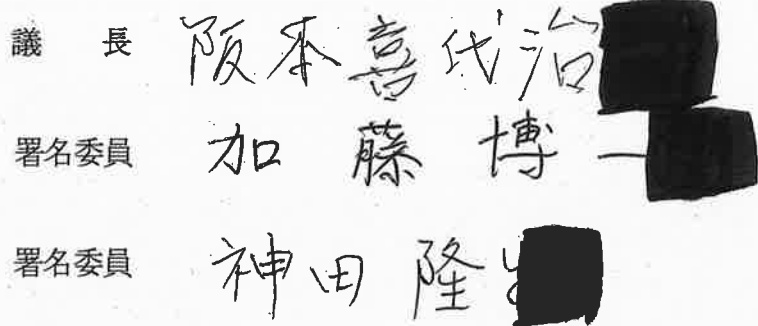 議長 阪本喜代治
署名委員 加藤博一
署名委員 神田隆